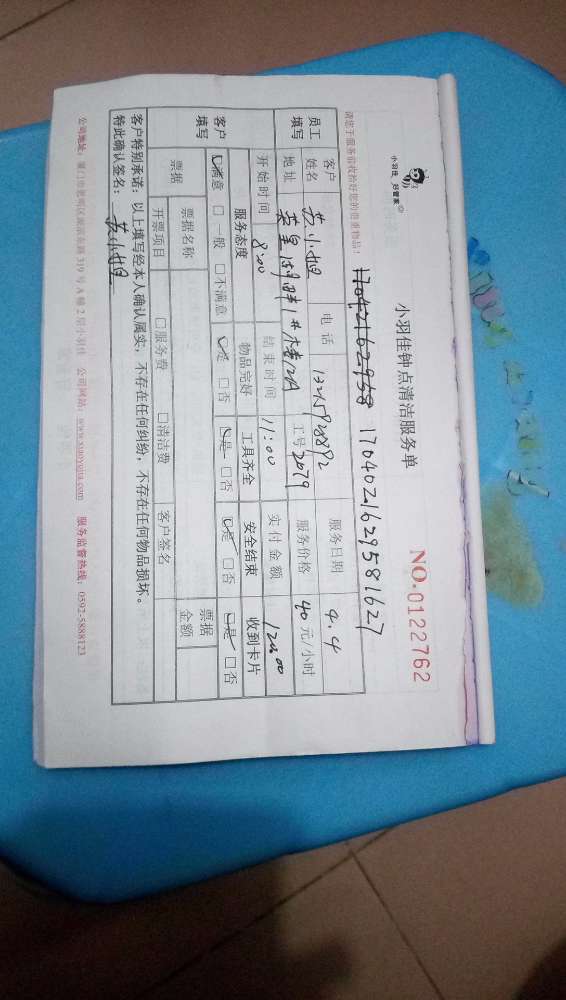 小羽佳 好管家
小羽佳钟点清洁服务单
NO.0122762
请您于服务前收拾好您的贵重物品!
1704021629581627
员工填写
客户姓名 苏小姐 电话 服务日期 4.4
地址 工号 2079 服务价格 40 元/小时
开始时间 8:00 结束时间 11:00 实付金额 120.00
客户填写
服务态度 物品完好 工具齐全 安全结束 收到卡片
☑满意 □一般 □不满意 ☑是 □否 ☑是 □否 ☑是 □否 ☑是 □否
票据 票据名称 票据金额
开票项目 □服务费 □清洁费 客户签名
客户特别承诺:以上填写经本人确认属实,不存在任何纠纷,不存在任何物品损坏。
特此确认签名: 苏小姐
公司地址:厦门市思明区 319号A幢2层小羽佳 公司网站:www.xiaoyujia.com 服务监督热线:0592-5888123